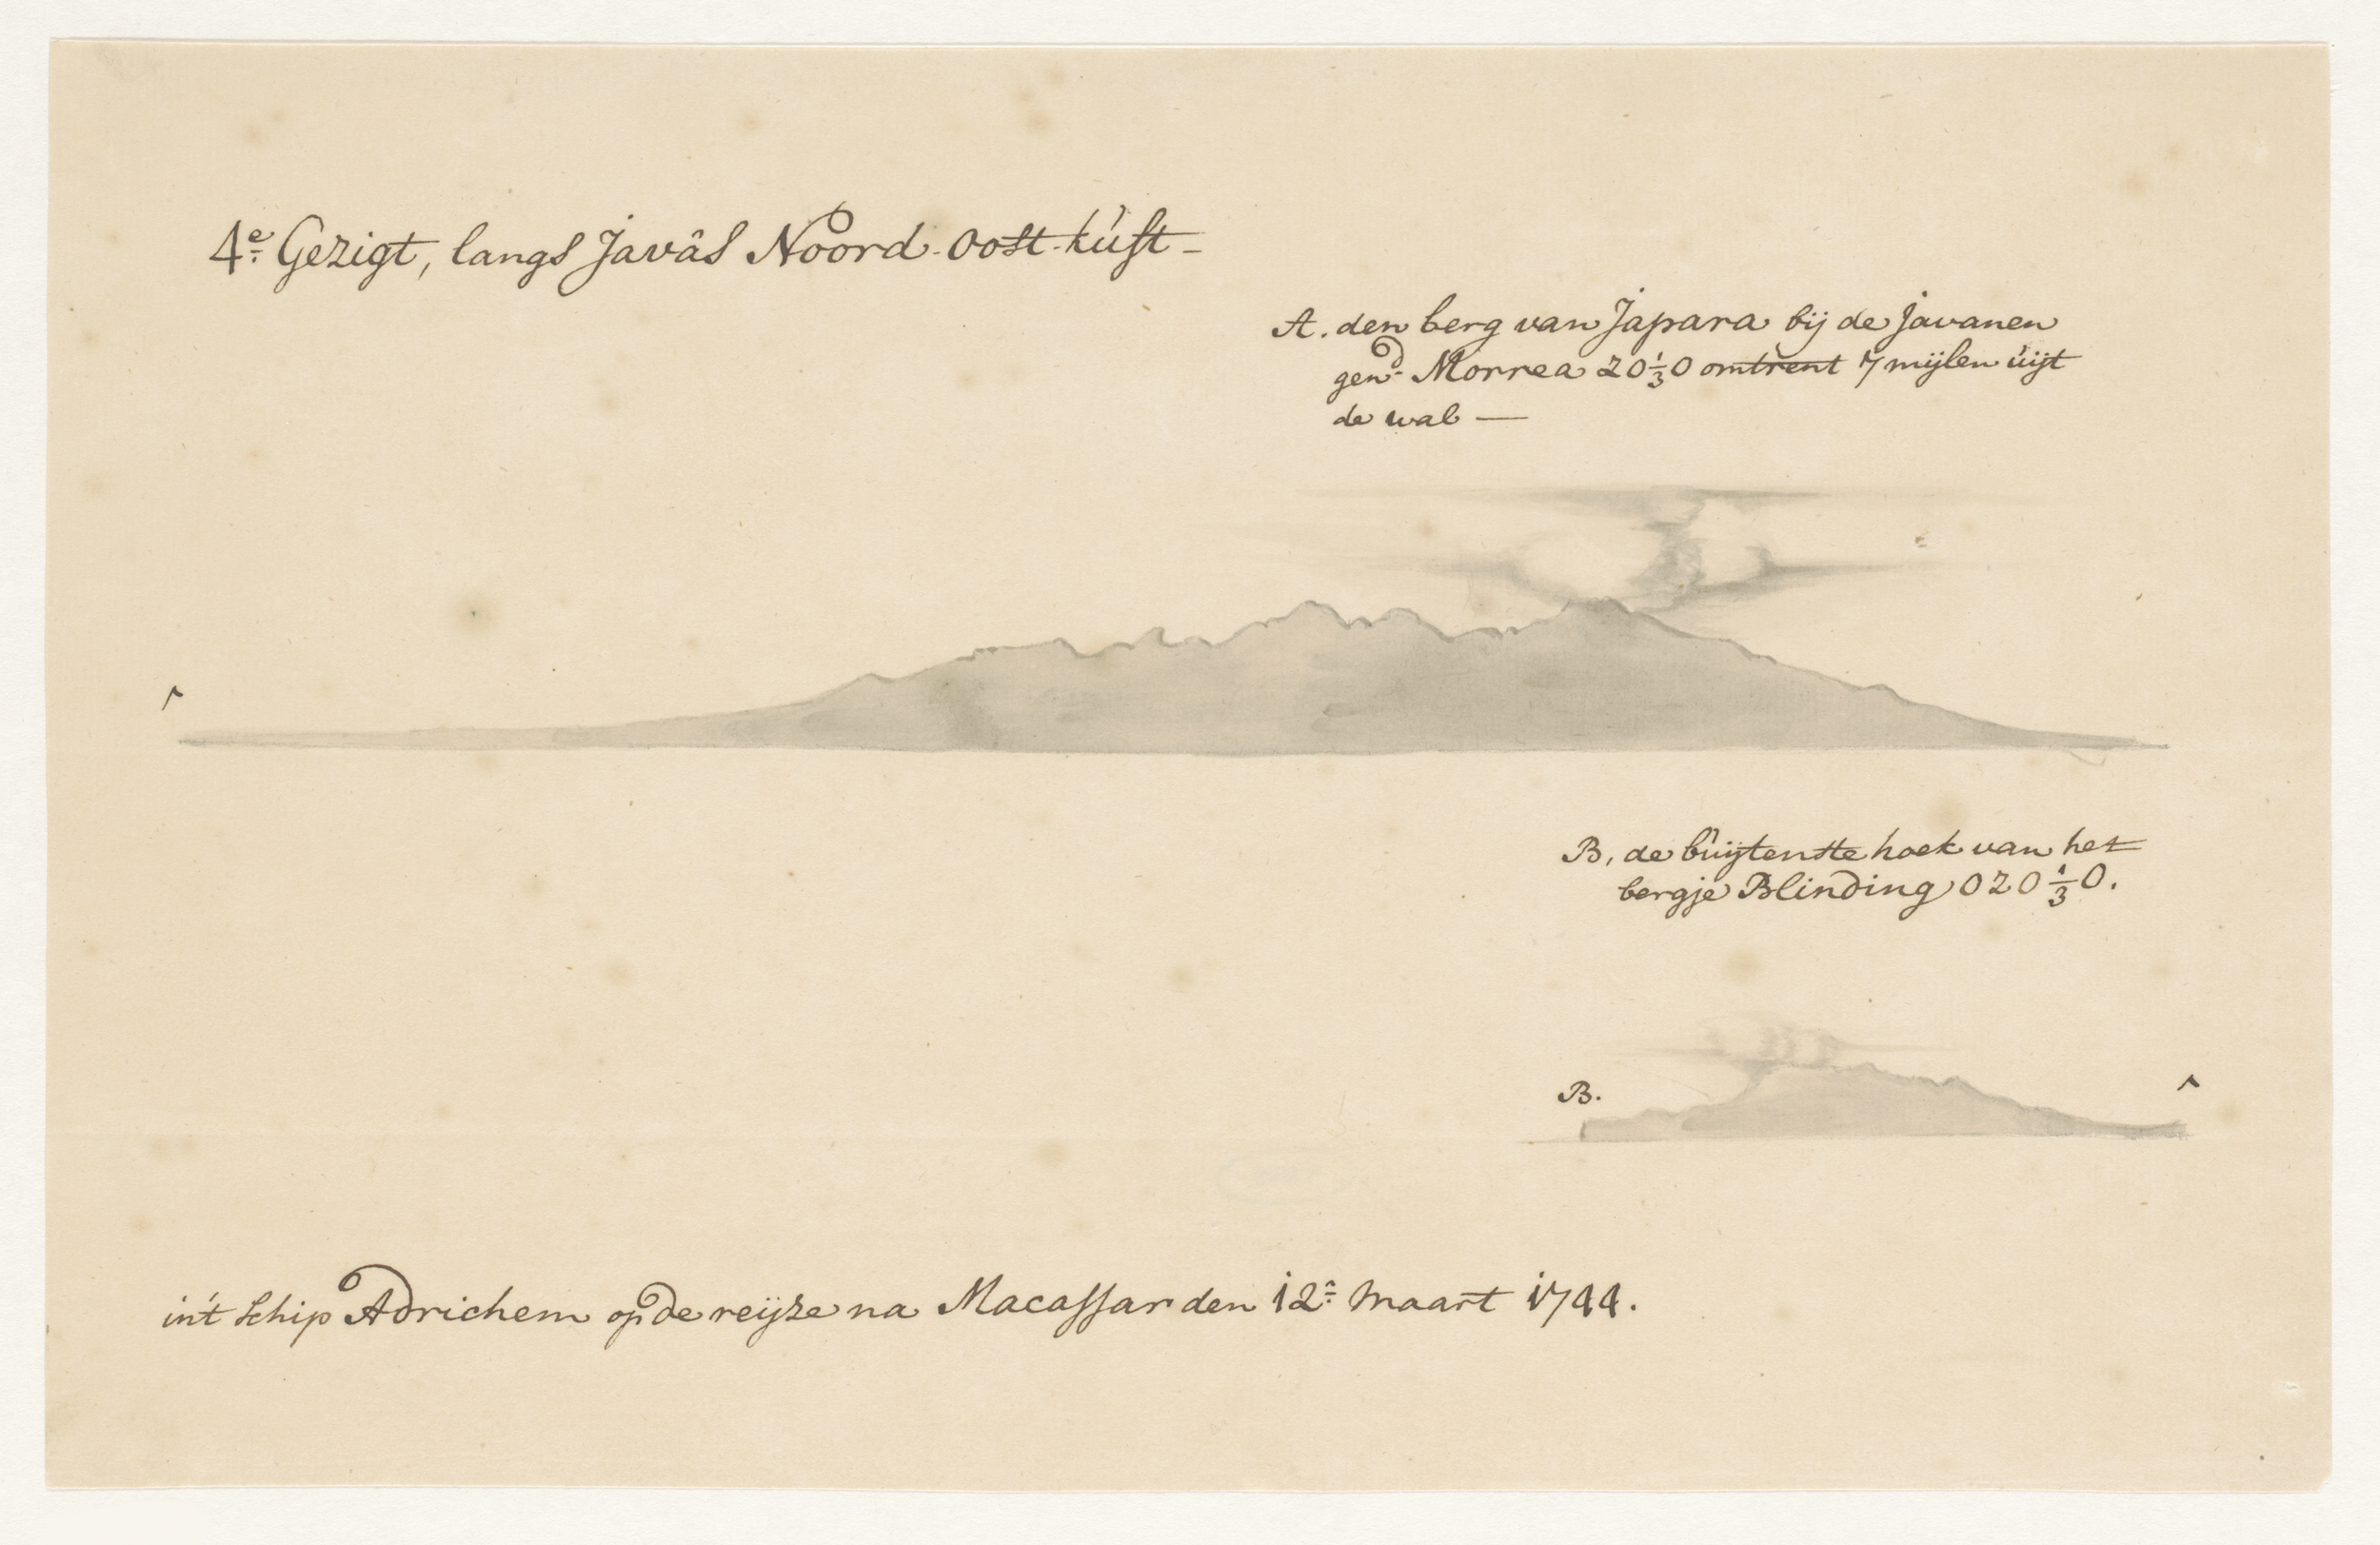 4e. Gezigt, langs Javâs Noord-Oost-kúst-
A. den berg van Japara bij de Javanen
gend. Morrea ZO⅓O omtrent 7 mijlen úijt
de wal —
B, de búijtenste hoek van het
bergje Blinding OZO⅓O.
B.
in't schip Adrichem op de reijze na Macassar den 12e. Maart 1744.